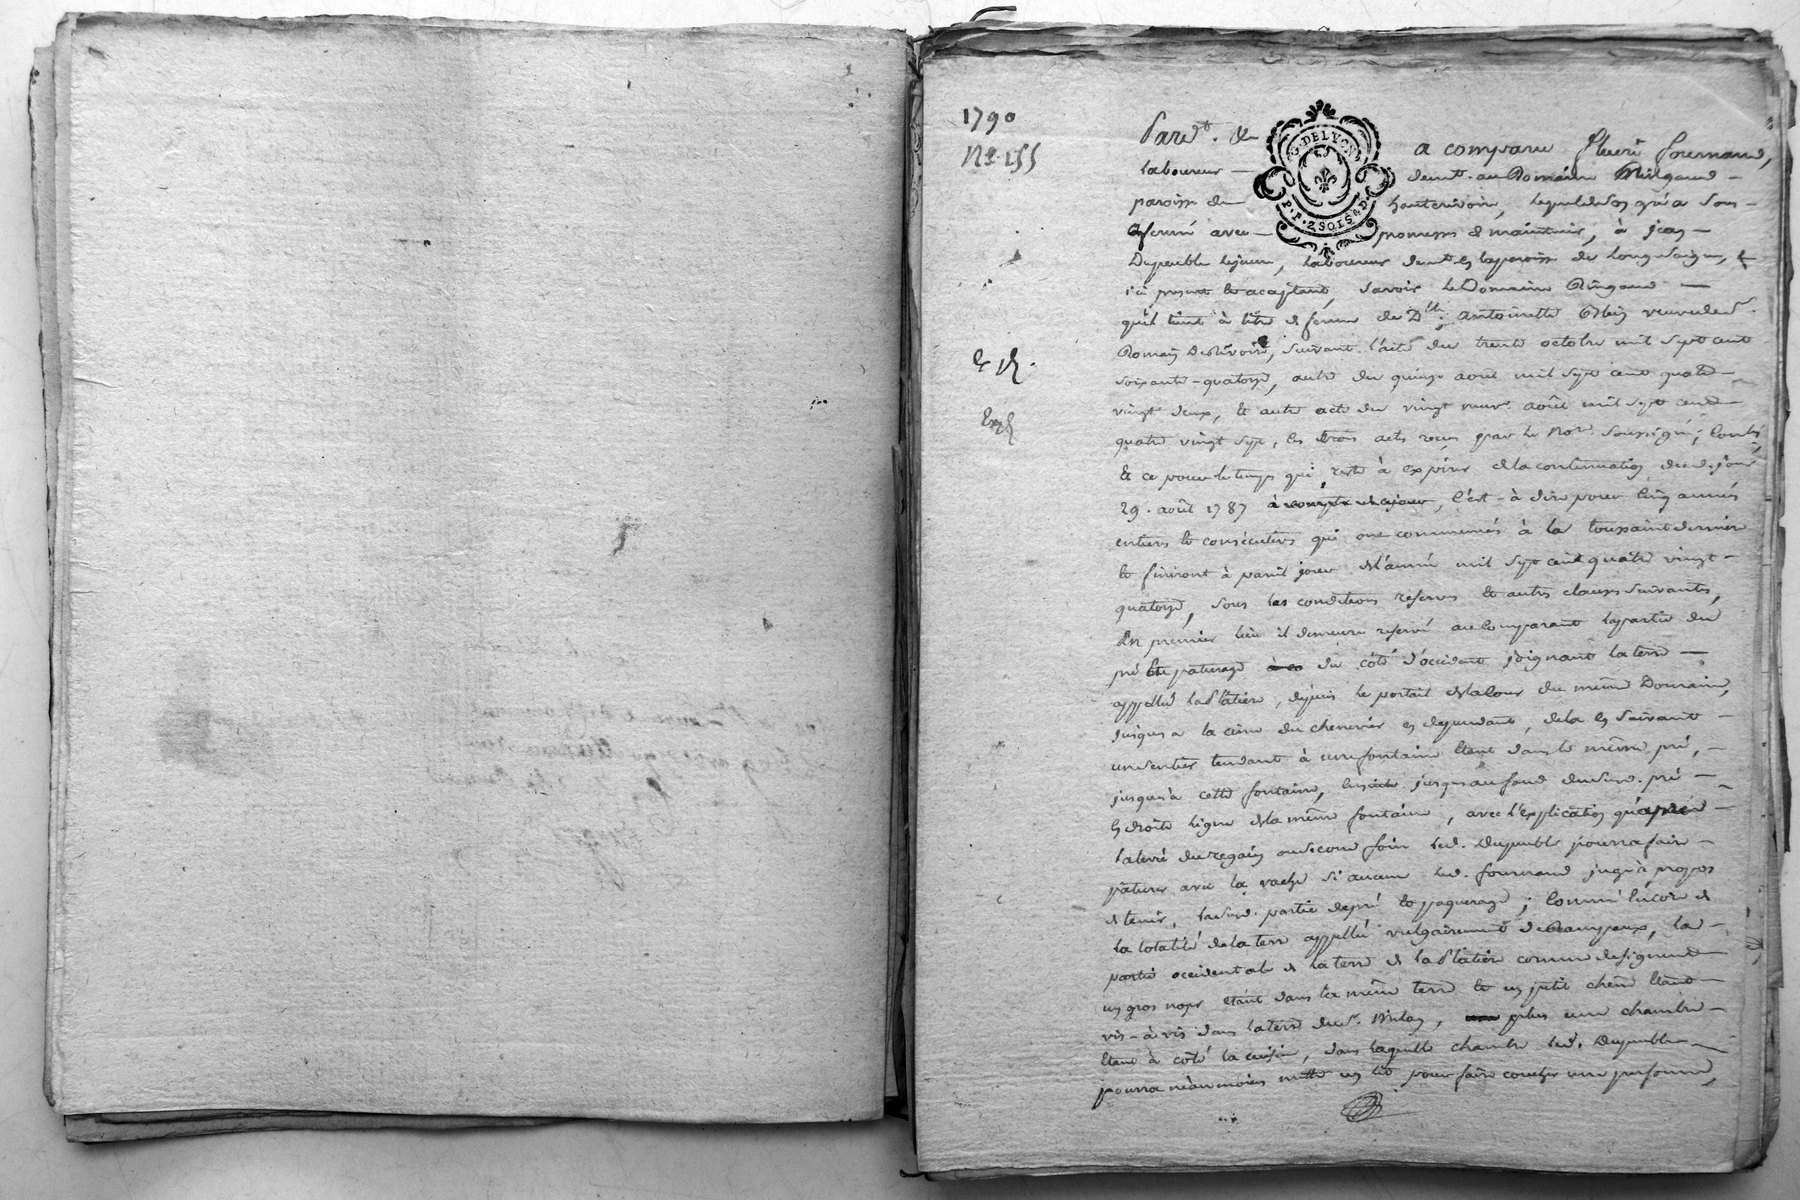 1790
N.° 155
G. DE LYON
P.P. 2 SOIS 4 D.
Pard.t &
a comparu fleuri fournand,
laboureur demt. au Domaine Ringaud
paroisse de hauterivoire, lequel de son gré a sous
affermé avec promesses de maintenir, à jean
Dupeuble lejeune, laboureur demt. en la paroisse de longesaigne,
ici present et acceptant, savoir le Domaine Ringaud
qu'il tient à titre de ferme de Dlle. antoinette veuve de Sr.
Romain, suivant l'acte du trente octobre mil sept cent
soixante-quatorze, autre du quinze aout mil sept cent quatre
vingt deux, et autre acte du vingt neuf aoút mil sept cent
quatre vingt sept, les trois actes recus par le Nore. soussigné,
& ce pour le temps qui reste à expirer de la continuation dud. jour
29. août 1787 à compter de ce jour, c'est-à dire pour cinq années
entieres et consécutives qui ont commencé à la toussaint derniere
et finiront à pareil jour de l'année mil sept cent quatre vingt
quatorze, sous les conditions reserves et autres clauses suivantes,
En premier lieu il demeure reservé au comparant la partie du
pré et paturage du côté d'occident joignant la terre
appellée la Platière, depuis le portail de la Cour du même Domaine,
jusques a la cime du chenevier en dependant, de la en suivant
un sentier tendant à une fontaine étant dans le même pré,
jusqu'à cette fontaine, ensuite jusques au fond dudit pré
en droite ligne de la même fontaine, avec l'explication qu'après
la levée du regain ou second foin led. Dupeuble pourra faire
pâturer avec la vache si aucune led. fournand juge à propos
de tenir, lasusd. partie de pré et paquerage; comme encore de
la totalité de la terre appellée vulgairement de Champeaux, la
partie occidentale de la terre de la Platière comme designent
un gros noyer étant dans la même terre et un petit chêne étant
vis-à vis dans la terre du Sr. Milan, plus une chambre
étant à côté la cuisine, dans laquelle chambre led. Dupeuble
pourra néanmoins mettre un lit pour faire coucher une personne,